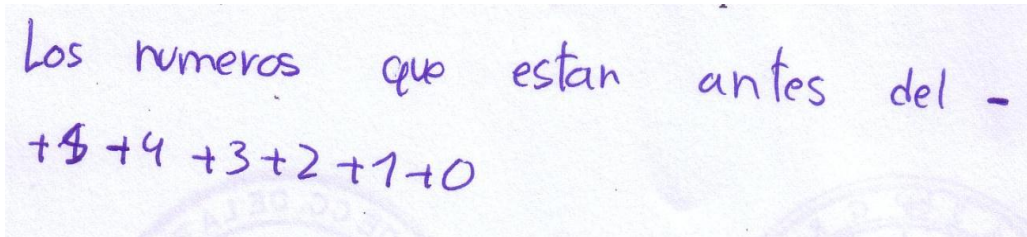 Los numeros que estan antes del -
+5 +4 +3 +2 +1 +0